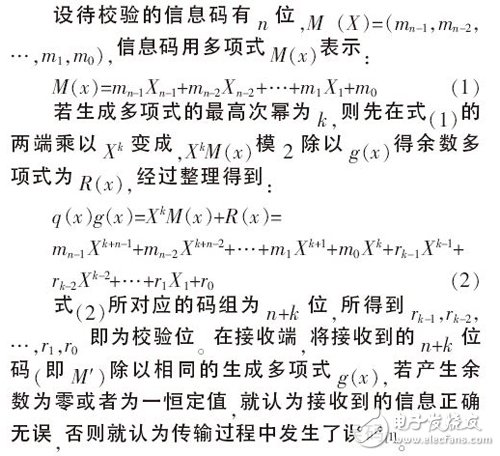 设待校验的信息码有 n 位,M (X)=(mn-1,mn-2,
…,m1,m0),信息码用多项式 M(x)表示:
M(x)=mn-1Xn-1+mn-2Xn-2+…+m1X1+m0 (1)
若生成多项式的最高次幂为 k,则先在式(1)的
两端乘以 X^k 变成,X^kM(x)模 2 除以 g(x)得余数多
项式为 R(x),经过整理得到:
q(x)g(x)=X^kM(x)+R(x)=
mn-1X^k+n-1+mn-2X^k+n-2+…+m1X^k+1+m0X^k+rk-1X^k-1+
rk-2X^k-2+…+r1X1+r0 (2)
式(2)所对应的码组为 n+k 位,所得到 rk-1,rk-2,
…,r1,r0 即为校验位。在接收端,将接收到的 n+k 位
码(即 M′)除以相同的生成多项式 g(x),若产生余
数为零或者为一恒定值,就认为接收到的信息正确
无误,否则就认为传输过程中发生了误
电子发烧友